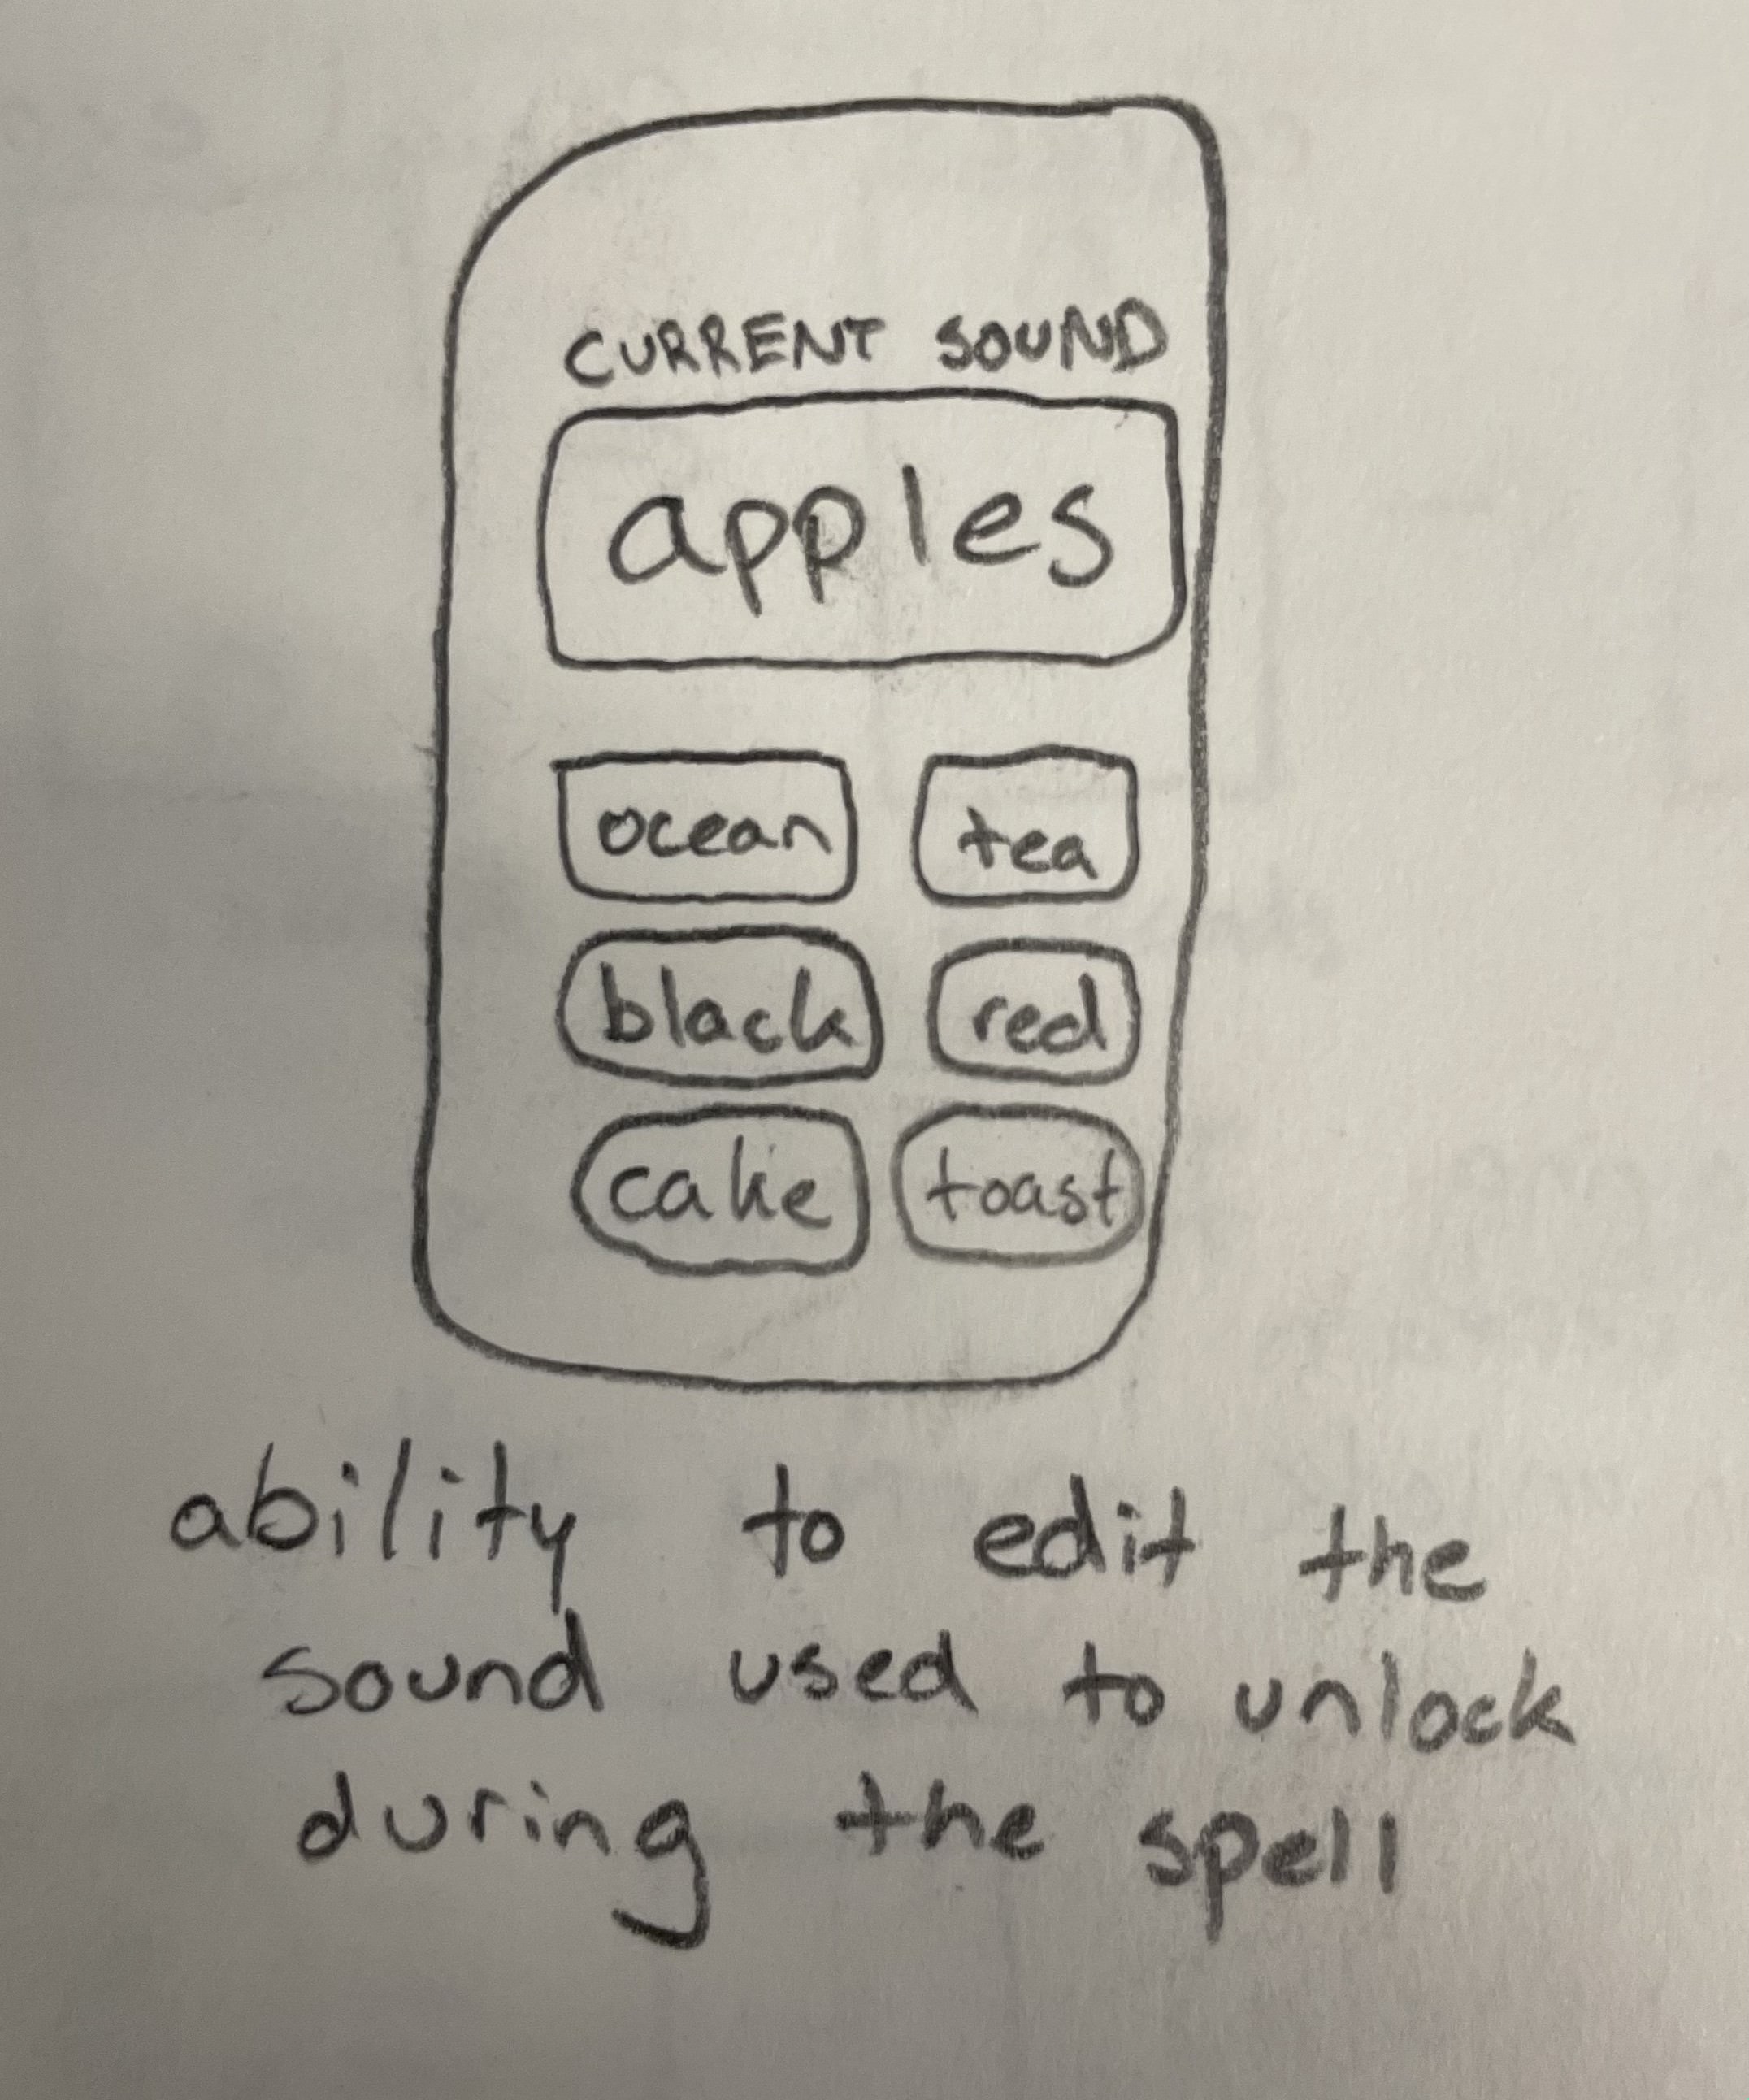 CURRENT SOUND
apples
ocean tea
black red
cake toast
ability to edit the
sound used to unlock
during the spell